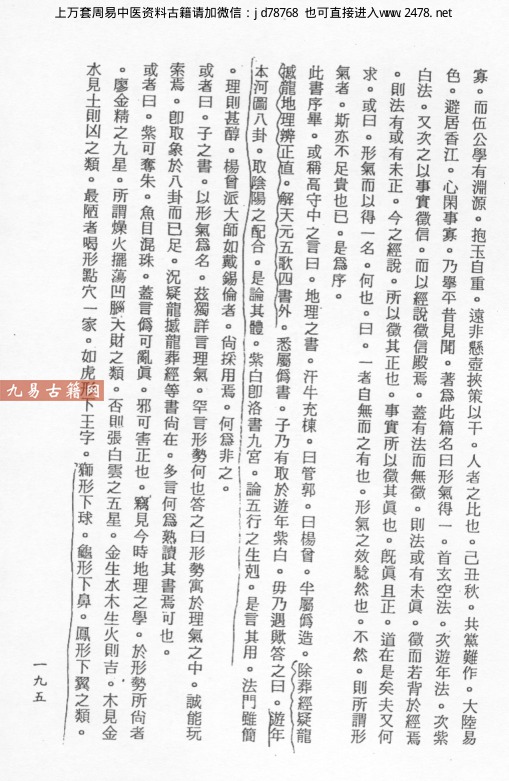 上万套周易中医资料古籍请加微信：jd78768 也可直接进入www.2478.net
寡。而伍公學有淵源。抱玉自重。遠非懸壺挾策以干。人者之比也。己丑秋。共黨難作。大陸易
色。避居香江。心閑事寡。乃舉平昔見聞。著爲此篇名曰形氣得一。首玄空法。次遊年法。次紫
白法。又次之以事實徵信。而以經說徵信殿焉。蓋有法而無徵。則法或有未眞。徵而若背於經焉
。則法有或有未正。今之經說。所以徵其正也。事實所以徵其眞也。旣眞且正。道在是矣夫又何
求。或曰。形氣而以得一名。何也。曰。一者自無而之有也。形氣之效騐然也。不然。則所謂形
氣者。斯亦不足貴也已。是爲序。
此書序畢。或稱高守中之言曰。地理之書。汗牛充棟。曰管郭。曰楊曾。半屬僞造。除葬經疑龍
撼龍地理辨正直。解天元五歌四書外。悉屬僞書。子乃有取於遊年紫白。毋乃遇歟答之曰。遊年
本河圖八卦。取陰陽之配合。是論其體。紫白卽洛書九宮。論五行之生剋。是言其用。法門雖簡
。理則甚醇。楊曾派大師如戴錫倫者。尙採用焉。何爲非之。
或者曰。子之書。以形氣爲名。茲獨詳言理氣。罕言形勢何也答之曰形勢寓於理氣之中。誠能玩
索焉。卽取象於八卦而已足。況疑龍撼龍葬經等書尙在。多言何爲熟讀其書焉可也。
或者曰。紫可奪朱。魚目混珠。蓋言僞可亂眞。邪可害正也。竊見今時地理之學。於形勢所尙者
。廖金精之九星。所謂燥火擺蕩凹腦大財之類。否則張白雲之五星。金生水木生火則吉。木見金
水見土則凶之類。最陋者喝形點穴一家。如虎形下王字。獅形下球。龜形下鼻。鳳形下翼之類。
九易古籍网
一九五